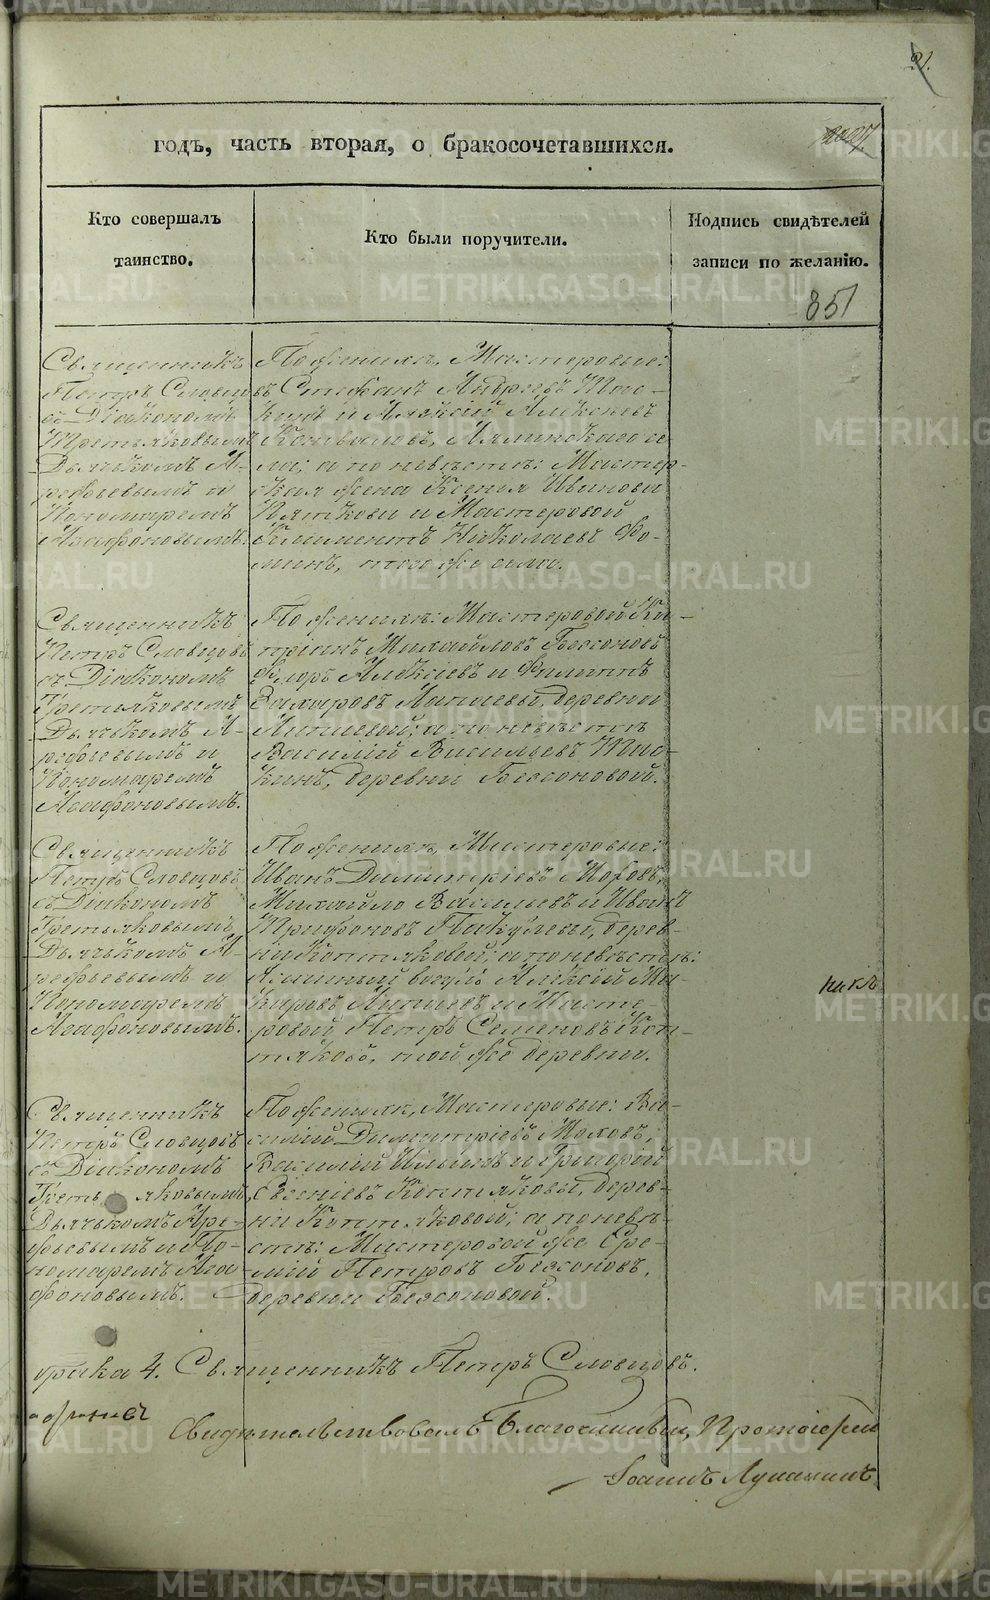 91.
годъ, часть вторая, о бракосочетавшихся.
Кто совершалъ
таинство.
Кто были поручители.
Подпись свидѣтелей
записи по желанію.
851
Священникъ
Петръ Словцовъ
съ Діакономъ
Третьяковымъ
Дьячькомъ А-
рефьевымъ и
Пономаремъ
Агафоновымъ.
По женихѣ, Мастеровые:
Стефанъ Андреевъ
и Алексій Алексѣевъ
Коновалов
ла; а по невѣстѣ: Мастер-
ская жена Ксенія Иванова
Пяткова и Мастеровой
Климентъ Николаевъ Фо-
минъ, того же села.
Священникъ
Петръ Словцовъ
съ Діакономъ
Третьяковымъ
Дьячькомъ А-
рефьевымъ и
Пономаремъ
Агафоновымъ.
По женихѣ: Мастеровой Ки-
пріанъ Михайловъ Бессоновъ
Алексіевъ и Филиппъ
Захаровъ Лапаевы, деревни
Лапаевой; а по невѣстѣ
Василій Васильевъ
деревни Бессоновой.
Священникъ
Петръ Словцовъ
съ Діакономъ
Третьяковымъ
Дьячькомъ А-
рефьевымъ и
Пономаремъ
Агафоновымъ.
По женихѣ, Мастеровые:
Иванъ Димитріевъ Мохов,
Михайло Васильевъ и Иванъ
Трифоновъ дерев-
ни Коптяковой; а по невѣстѣ:
Алексій Ма-
каровъ Лапаевъ и Масте-
ровой Петръ Семеновъ Коп-
тяковъ, той же деревни.
Священникъ
Петръ Словцовъ
съ Діакономъ
Третьяковымъ,
Дьячькомъ Аре-
фьевымъ и По-
номаремъ Ага-
фоновымъ.
По женихѣ, Мастеровые: Ва-
силій Димитріевъ Мохов,
Василій Ильинъ и Григорій
Евсеніевъ Коптяковы, дерев-
ни Коптяковой; а по невѣ-
стѣ: Мастеровой же Ере-
мій Петровъ Бессоновъ,
деревни Бессоновой.
брака 4. Священникъ Петръ Словцовъ.
Свидѣтельствовалъ Благочинный, Протоіерей
Іоаннъ
METRIKI.GASO-URAL.RU